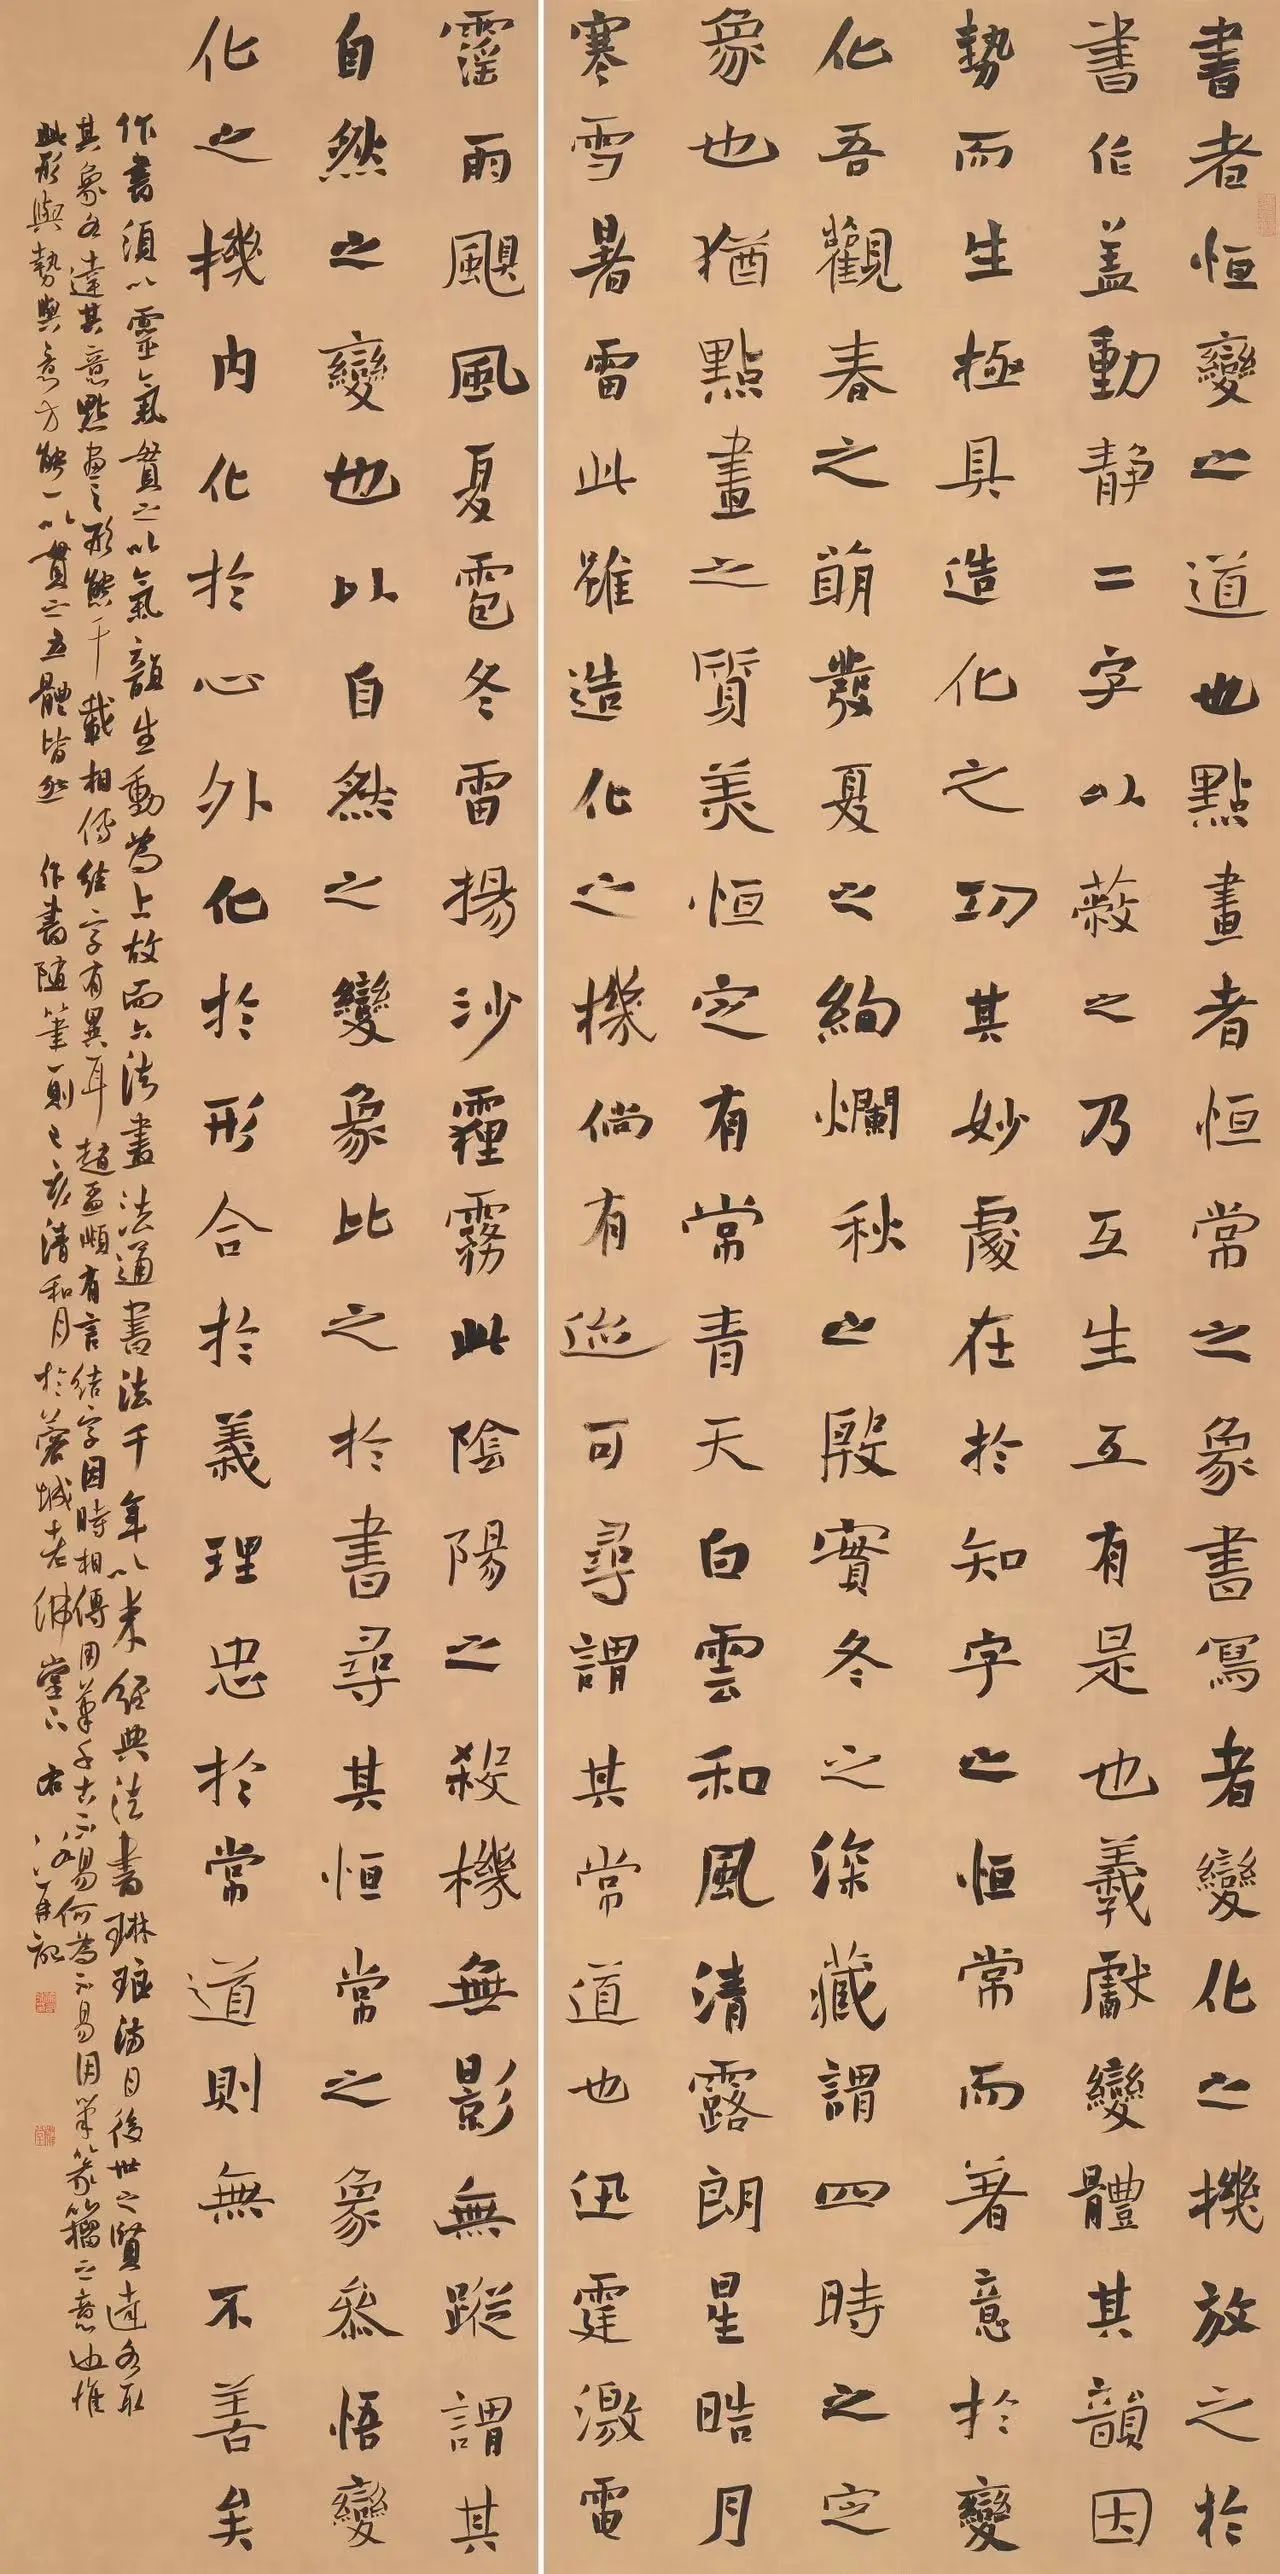 書者恒變之道也點畫者恒常之象書寫者變化之機放之於
書作蓋動靜二字以蔽之乃互生互有是也義獻變體其韻因
勢而生極具造化之功其妙處在於知字之恒常而著意於變
化吾觀春之萌發夏之絢爛秋之殷實冬之深藏謂四時之定
象也猶點畫之質美恒定有常青天白雲和風清露朗星晧月
寒雪暑雷此雖造化之機倘有迹可尋謂其常道也迅霆激電
霪雨颶風夏雹冬雷揚沙霾霧此陰陽之殺機無影無蹤謂其
自然之變也以自然之變象比之於書尋其恒常之象叅悟變
化之機内化於心外化於形合於義理忠於常道則無不善矣
作書須以靈氣貫之以氣韻生動為上故而六法畫法通書法千年以来經典法書琳琅滿目後世之賢達各取
其象各達其意點畫之形態千載相傳結字有異耳趙孟頫有言結字因時相傳用筆千古不易何為不易因筆篆籀之意也惟
此形與勢與意方能一以貫之五體皆然 作書隨筆一則己亥清和月於蓉城老佛堂